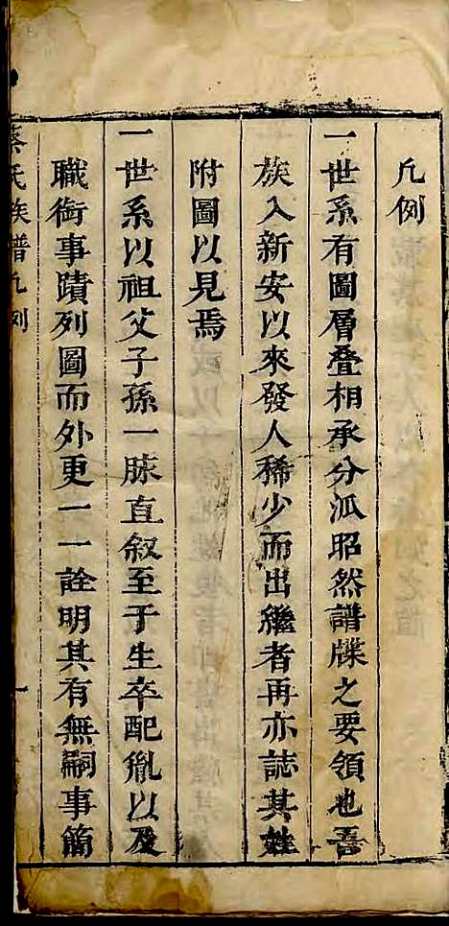 凡例
一世系有圖層叠相承分派昭然譜牒之要領也吾
族入新安以來發人稀少而出繼者再亦誌其姓
附圖以見焉
一世系以祖父子孫一脉直叙至于生卒配胤以及
職銜事蹟列圖而外更一一詮明其有無嗣事簡
蔡氏族譜凡例
一